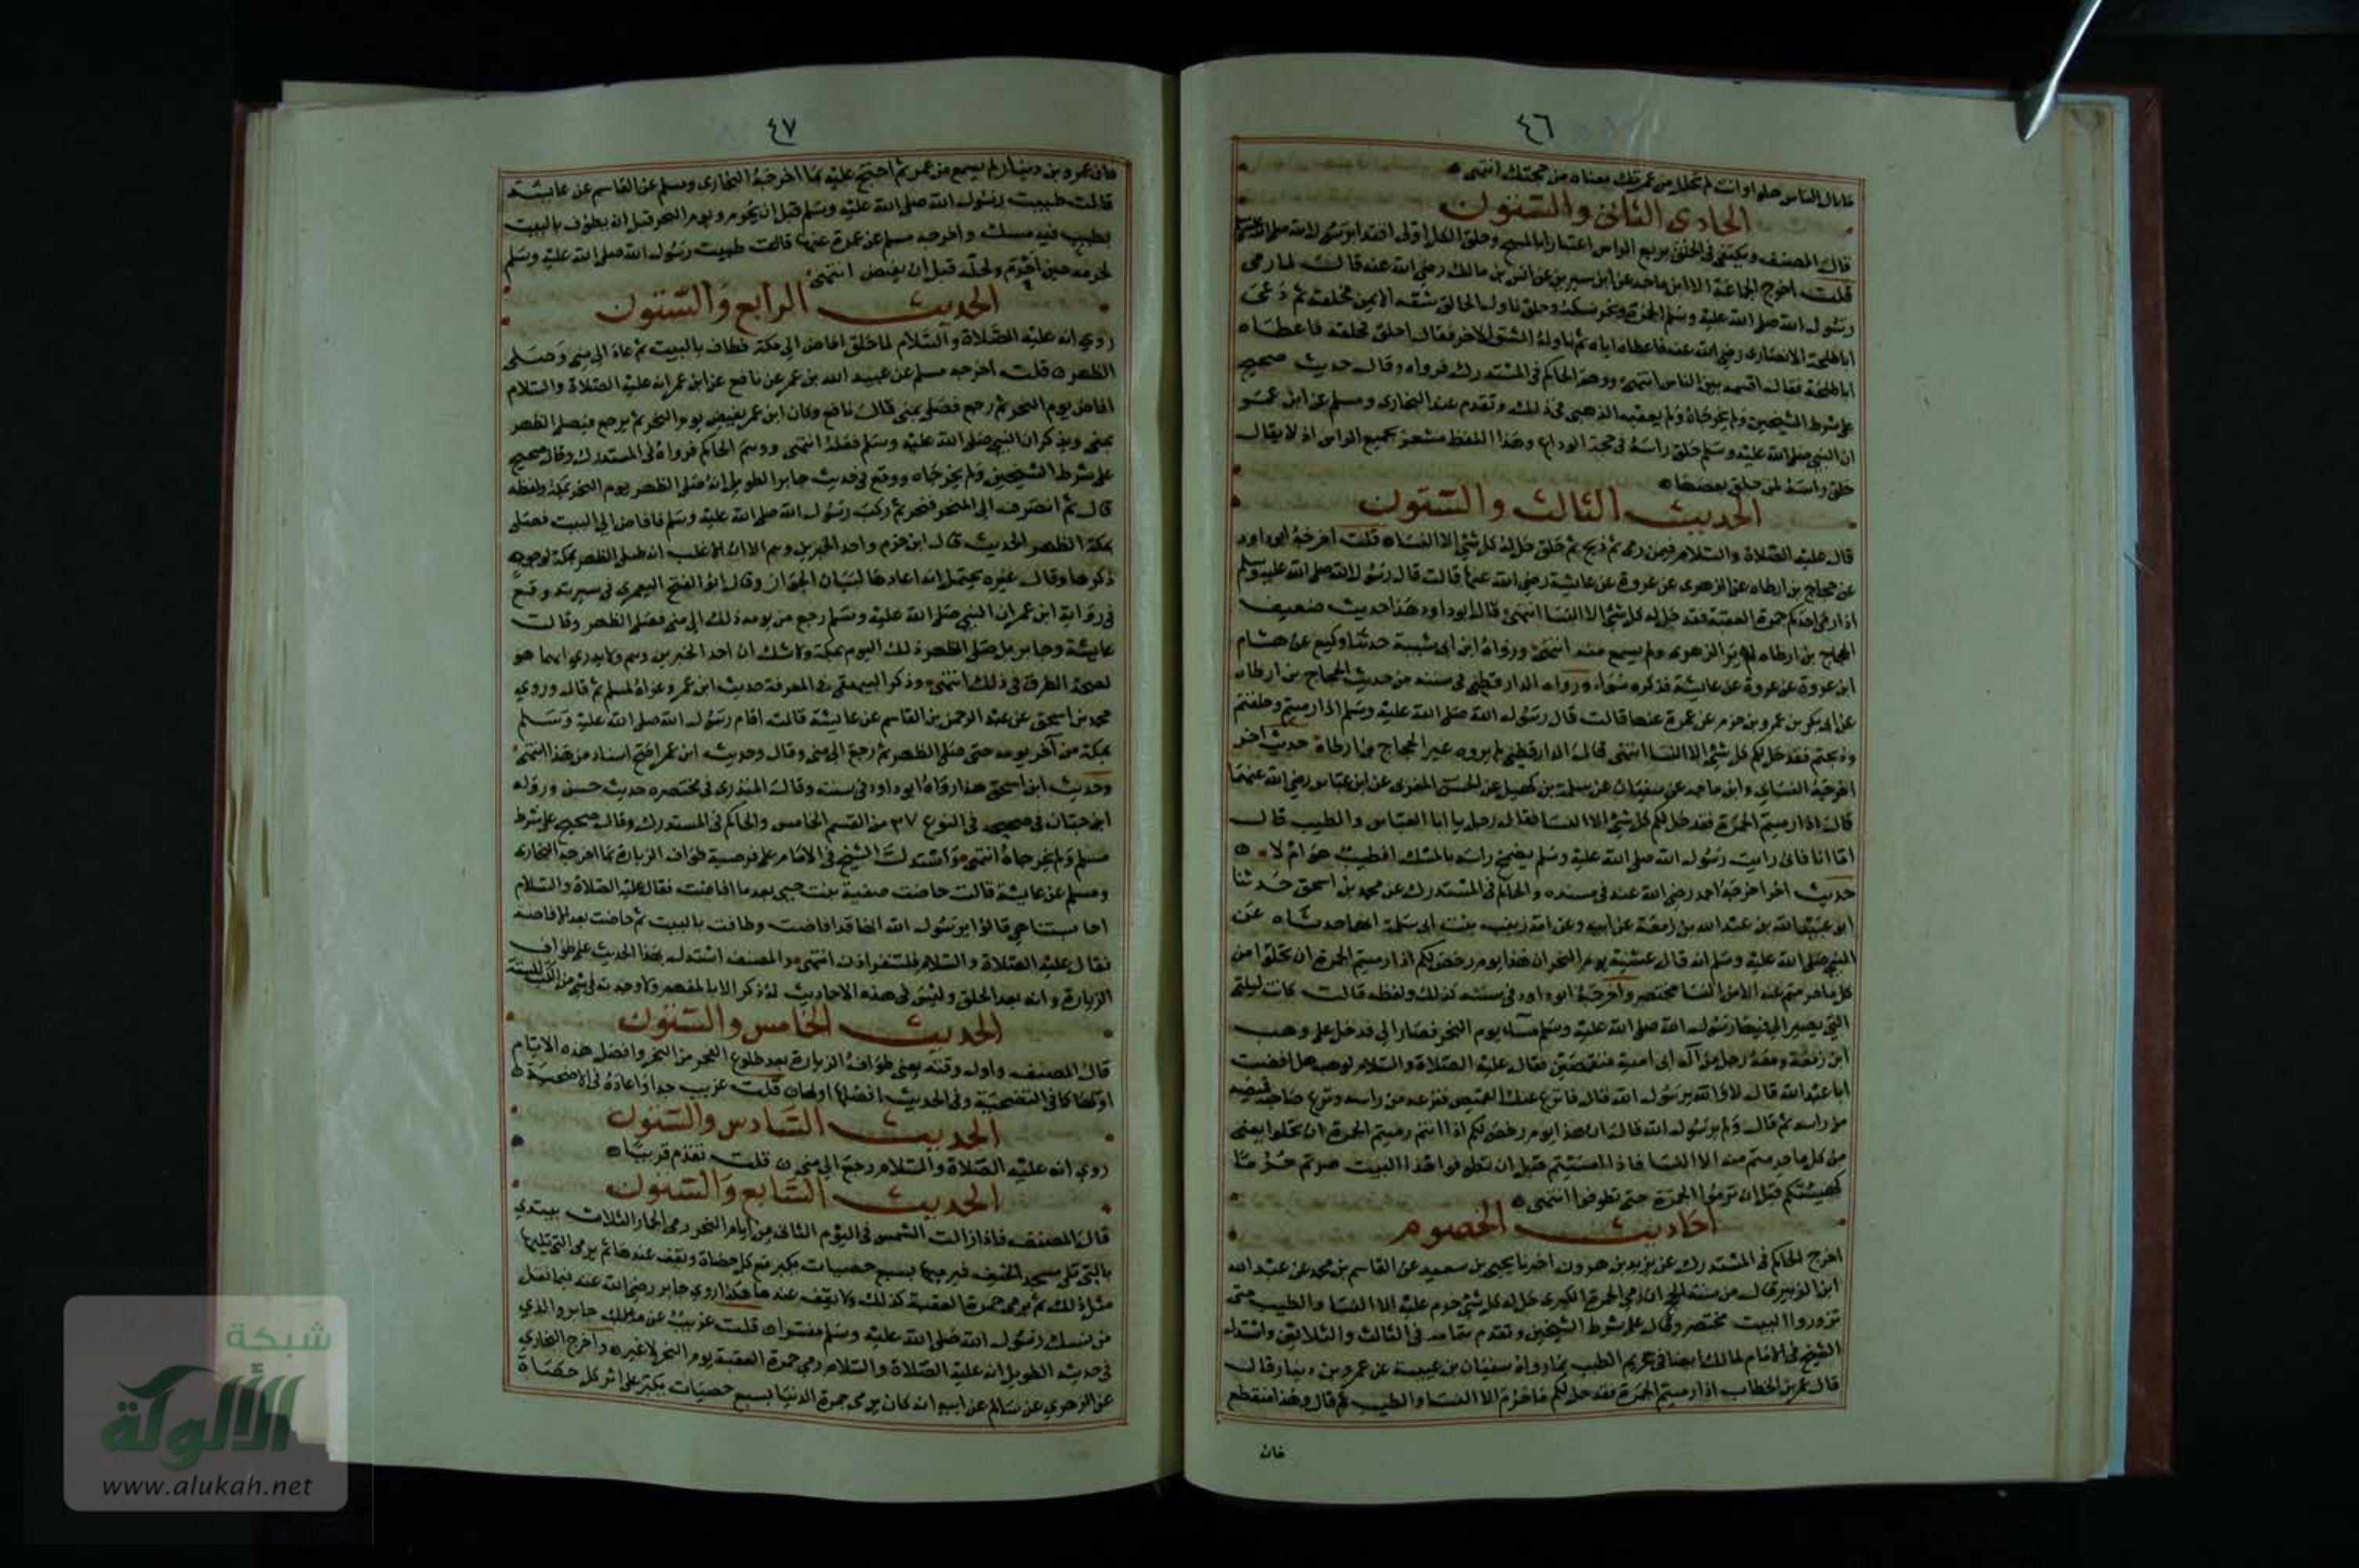 ٤٦
ما بال الناس حلوا وانت لم تحلل من عمرتك معناه من حجتك انتهى
الحادى الثانى والستون
قال المصنف ويكتفى فى الحلق بربع الراس اعتبارا بالمسح وحلق الكل اولى اقتدا برسول الله صلى الله عليه وسلم
قلت اخرج الجماعة الا ابن ماجه عن ابن سيرين عن انس بن مالك رضى الله عنه قال لما رمى
رسول الله صلى الله عليه وسلم الجمرة ونحر نسكه وحلق ناول الحالق شقه الايمن فحلقه ثم دعى
ابا طلحة الانصارى رضى الله عنه فاعطاه اياه ثم ناوله الشق الاخر فقال احلق فحلقه فاعطاه
ابا طلحة فقال اقسمه بين الناس انتهى ووهم الحاكم فى المستدرك فرواه وقال حديث صحيح
على شرط الشيخين ولم يخرجاه ولم يعقبه الذهبى فى ذلك وتقدم عند البخارى ومسلم عن ابن عمر
ان النبى صلى الله عليه وسلم حلق راسه فى حجة الوداع وهذا اللفظ مشعر بجميع الراس اذ لا يقال
حلق راسه لمن حلق بعضها
الحديث الثالث والستون
قال عليه الصلاة والسلام فيمن رمى ثم ذبح ثم حلق حل له كل شئ الا النساء قلت اخرجه ابو داود
عن حجاج بن ارطاه عن الزهرى عن عروة عن عايشة رضى الله عنها قالت قال رسول الله صلى الله عليه وسلم
اذا رمى احدكم جمرة العقبة فقد حل له كل شئ الا النسا انتهى قال ابو داود هذا حديث ضعيف
الحجاج بن ارطاه لم ير الزهرى ولم يسمع منه انتهى ورواه ابن ابى شيبة حدثنا وكيع عن هشام
ابن عروة عن عروة عن عايشة فذكره سواء ورواه الدارقطنى فى سننه من حديث الحجاج بن ارطاه
عن ابى بكر بن عمرو بن حزم عن عمرة عنها قالت قال رسول الله صلى الله عليه وسلم اذا رميتم وحلقتم
وذبحتم فقد حل لكم كل شئ الا النسا انتهى قال الدارقطنى لم يروه غير الحجاج بن ارطاة حديث اخر
اخرجه النساى وابن ماجه عن سفيان عن سلمة بن كهيل عن الحسن العرنى عن ابن عباس رضى الله عنهما
قال اذا رميتم الجمرة فقد حل لكم كل شئ الا النسا فقال رجل يا ابا العباس والطيب قال
اما انا فانى رايت رسول الله صلى الله عليه وسلم يضمخ راسه بالمسك افطيب هو ام لا
حديث اخر اخرجه احمد رضى الله عنه فى مسنده والحاكم فى المستدرك عن محمد بن اسحق حدثنا
ابو عبيدالله بن عبد الله بن زمعة عن ابيه وعن امه زينب بنت ابى سلمة انها حدثتاه عن
النبى صلى الله عليه وسلم انه قال عشية يوم النحر ان هذا يوم رخص لكم اذا رميتم الجمرة ان تحلوا من
كل ما حرمتم عنه الا من النسا مختصر واخرجه ابو داود فى سننه كذلك ولفظه قالت كانت ليلتى
التى يصير الى فيها رسول الله صلى الله عليه وسلم مساء يوم النحر فصار الى فدخل على وهب
ابن زمعة ومعه رجل من آل ابى امية متقمصين فقال عليه الصلاة والسلام لوهب هل افضت
ابا عبد الله قال لا والله يرسول الله قال فانزع عنك القميص فنزعه من راسه ونزع صاحبه قميصه
من راسه ثم قال ولم يرسول الله قال ان هذا يوم رخص لكم اذا انتم رميتم الجمرة ان تحلوا يعنى
من كل ما حرمتم منه الا النسا فاذا امسيتم قبل ان تطوفوا هذا البيت صرتم حرما
كهيئتكم قبل ان ترموا الجمرة حتى تطوفوا انتهى
احاديث الخصوم
اخرج الحاكم فى المستدرك عن يزيد بن هرون اخبرنا يحيى بن سعيد عن القاسم بن محمد عن عبد الله
ابن الزبير قال من سنة الحج ان رمى الجمرة الكبرى حل له كل شئ حرم عليه الا النسا والطيب حتى
تزوروا البيت مختصر وقال على شرط الشيخين وتقدم بتمامه فى الثالث والثلاثين واستدل
الشيخ فى الامام لمالك ايضا فى تحريم الطيب بما رواه سفيان بن عيينة عن عمرو بن دينار قال
قال عمر بن الخطاب اذا رميتم الجمرة فقد حل لكم ما حرم الا النسا والطيب ثم قال وهذا منقطع
فان
٤٧
فان عمرو بن دينار لم يسمع من عمر ثم احتج عليه بما اخرجه البخارى ومسلم عن القاسم عن عايشة
قالت طيبت رسول الله صلى الله عليه وسلم قبل ان يحرم ويوم النحر قبل ان يطوف بالبيت
بطيب فيه مسك واخرجه مسلم عن عمرة عنها قالت طيبت رسول الله صلى الله عليه وسلم
لحرمه حين احرم ولحله قبل ان يفيض انتهى
الحديث الرابع والستون
روي انه عليه الصلاة والسلام لما حلق افاض الى مكة فطاف بالبيت ثم عاد الى منى وصلى
الظهر قلت اخرجه مسلم عن عبيد الله بن عمر عن نافع عن ابن عمر انه عليه الصلاة والسلام
افاض يوم النحر ثم رجع فصلى بمنى قال نافع وكان ابن عمر يفيض يوم النحر ثم يرجع فيصلى الظهر
بمنى ويذكر ان النبي صلى الله عليه وسلم فعله انتهى ووهم الحاكم فرواه فى المستدرك وقال صحيح
على شرط الشيخين ولم يخرجاه ووقع فى حديث جابر الطويل انه صلى الظهر يوم النحر بمكة ولفظه
قال ثم انصرف الى المنحر فنحر ثم ركب رسول الله صلى الله عليه وسلم فافاض الى البيت فصلى
بمكة الظهر الحديث قال ابن حزم واحد الخبرين وهم الا ان الاغلب انه صلى الظهر بمكة لوجوه
ذكرها وقال غيره يحتمل انه اعادها لبيان الجواز وقال ابو الفتح اليعمرى فى سيرته وقع
فى رواية ابن عمر ان النبي صلى الله عليه وسلم رجع من يومه ذلك الى منى فصلى الظهر وقالت
عايشة وجابر بل صلى الظهر ذلك اليوم بمكة ولا شك ان احد الخبرين وهم ولا يدري ايهما هو
لصحة الطرق فى ذلك انتهى وذكر البيهقي فى المعرفة حديث ابن عمر وعزاه لمسلم ثم قال وروي
محمد بن اسحق عن عبد الرحمن بن القاسم عن عايشة قالت افام رسول الله صلى الله عليه وسلم
بمكة من آخر يومه حتى صلى الظهر ثم رجع الى منى وقال وحديث ابن عمر اصح اسناد من هذا انتهى
وحديث ابن اسحق هذا رواه ابو داود فى سننه وقال المنذرى فى مختصره حديث حسن ورواه
ابن حبان فى صحيحه فى النوع ٣٧ من القسم الخامس والحاكم فى المستدرك وقال صحيح على شرط
مسلم ولم يخرجاه انتهى واستدل الشيخ فى الامام على فرضية طواف الزيارة بما اخرجه البخارى
ومسلم عن عايشة قالت حاضت صفية بنت حيي بعد ما افاضت فقال عليه الصلاة والسلام
احابستنا هي قالوا يرسول الله انها قد افاضت وطافت بالبيت ثم حاضت بعد الافاضة
فقال عليه الصلاة والسلام فلتنفر اذن انتهى والمصنف استدل بهذا الحديث على طواف
الزيارة وانه بعد الحلق وليس فى هذه الاحاديث له ذكر الا بالمفهوم ولا وجدته فى شئ من الكتب الستة
الحديث الخامس والستون
قال المصنف واول وقته يعنى طواف الزيارة بعد طلوع الفجر من النحر وافضل هذه الايام
اولها كما فى التضحية وفى الحديث افضلها اولها قلت غريب جدا واعاده فى الاضحية
الحديث السادس والستون
روي انه عليه الصلاة والسلام رجع الى منى قلت تقدم قريبا
الحديث السابع والستون
قال المصنف فاذا زالت الشمس فى اليوم الثانى من ايام النحر رمى الجمار الثلاث يبتدي
بالتي تلى مسجد الخيف فيرميها بسبع حصيات يكبر مع كل حصاة ويقف عندها ثم يرمى التى تليها
مثل ذلك ثم يرمى جمرة العقبة كذلك ولا يقف عندها هكذا روي جابر رضى الله عنه فيما نقل
من نسك رسول الله صلى الله عليه وسلم مفسرا قلت غريب عن جابر والذي
فى حديثه الطويل انه عليه الصلاة والسلام رمى جمرة العقبة يوم النحر لا غير واخرج البخاري
عن الزهري عن سالم عن ابيه انه كان يرمى جمرة الدنيا بسبع حصيات يكبر على اثر كل حصاة
شبكة
الألوكة
www.alukah.net